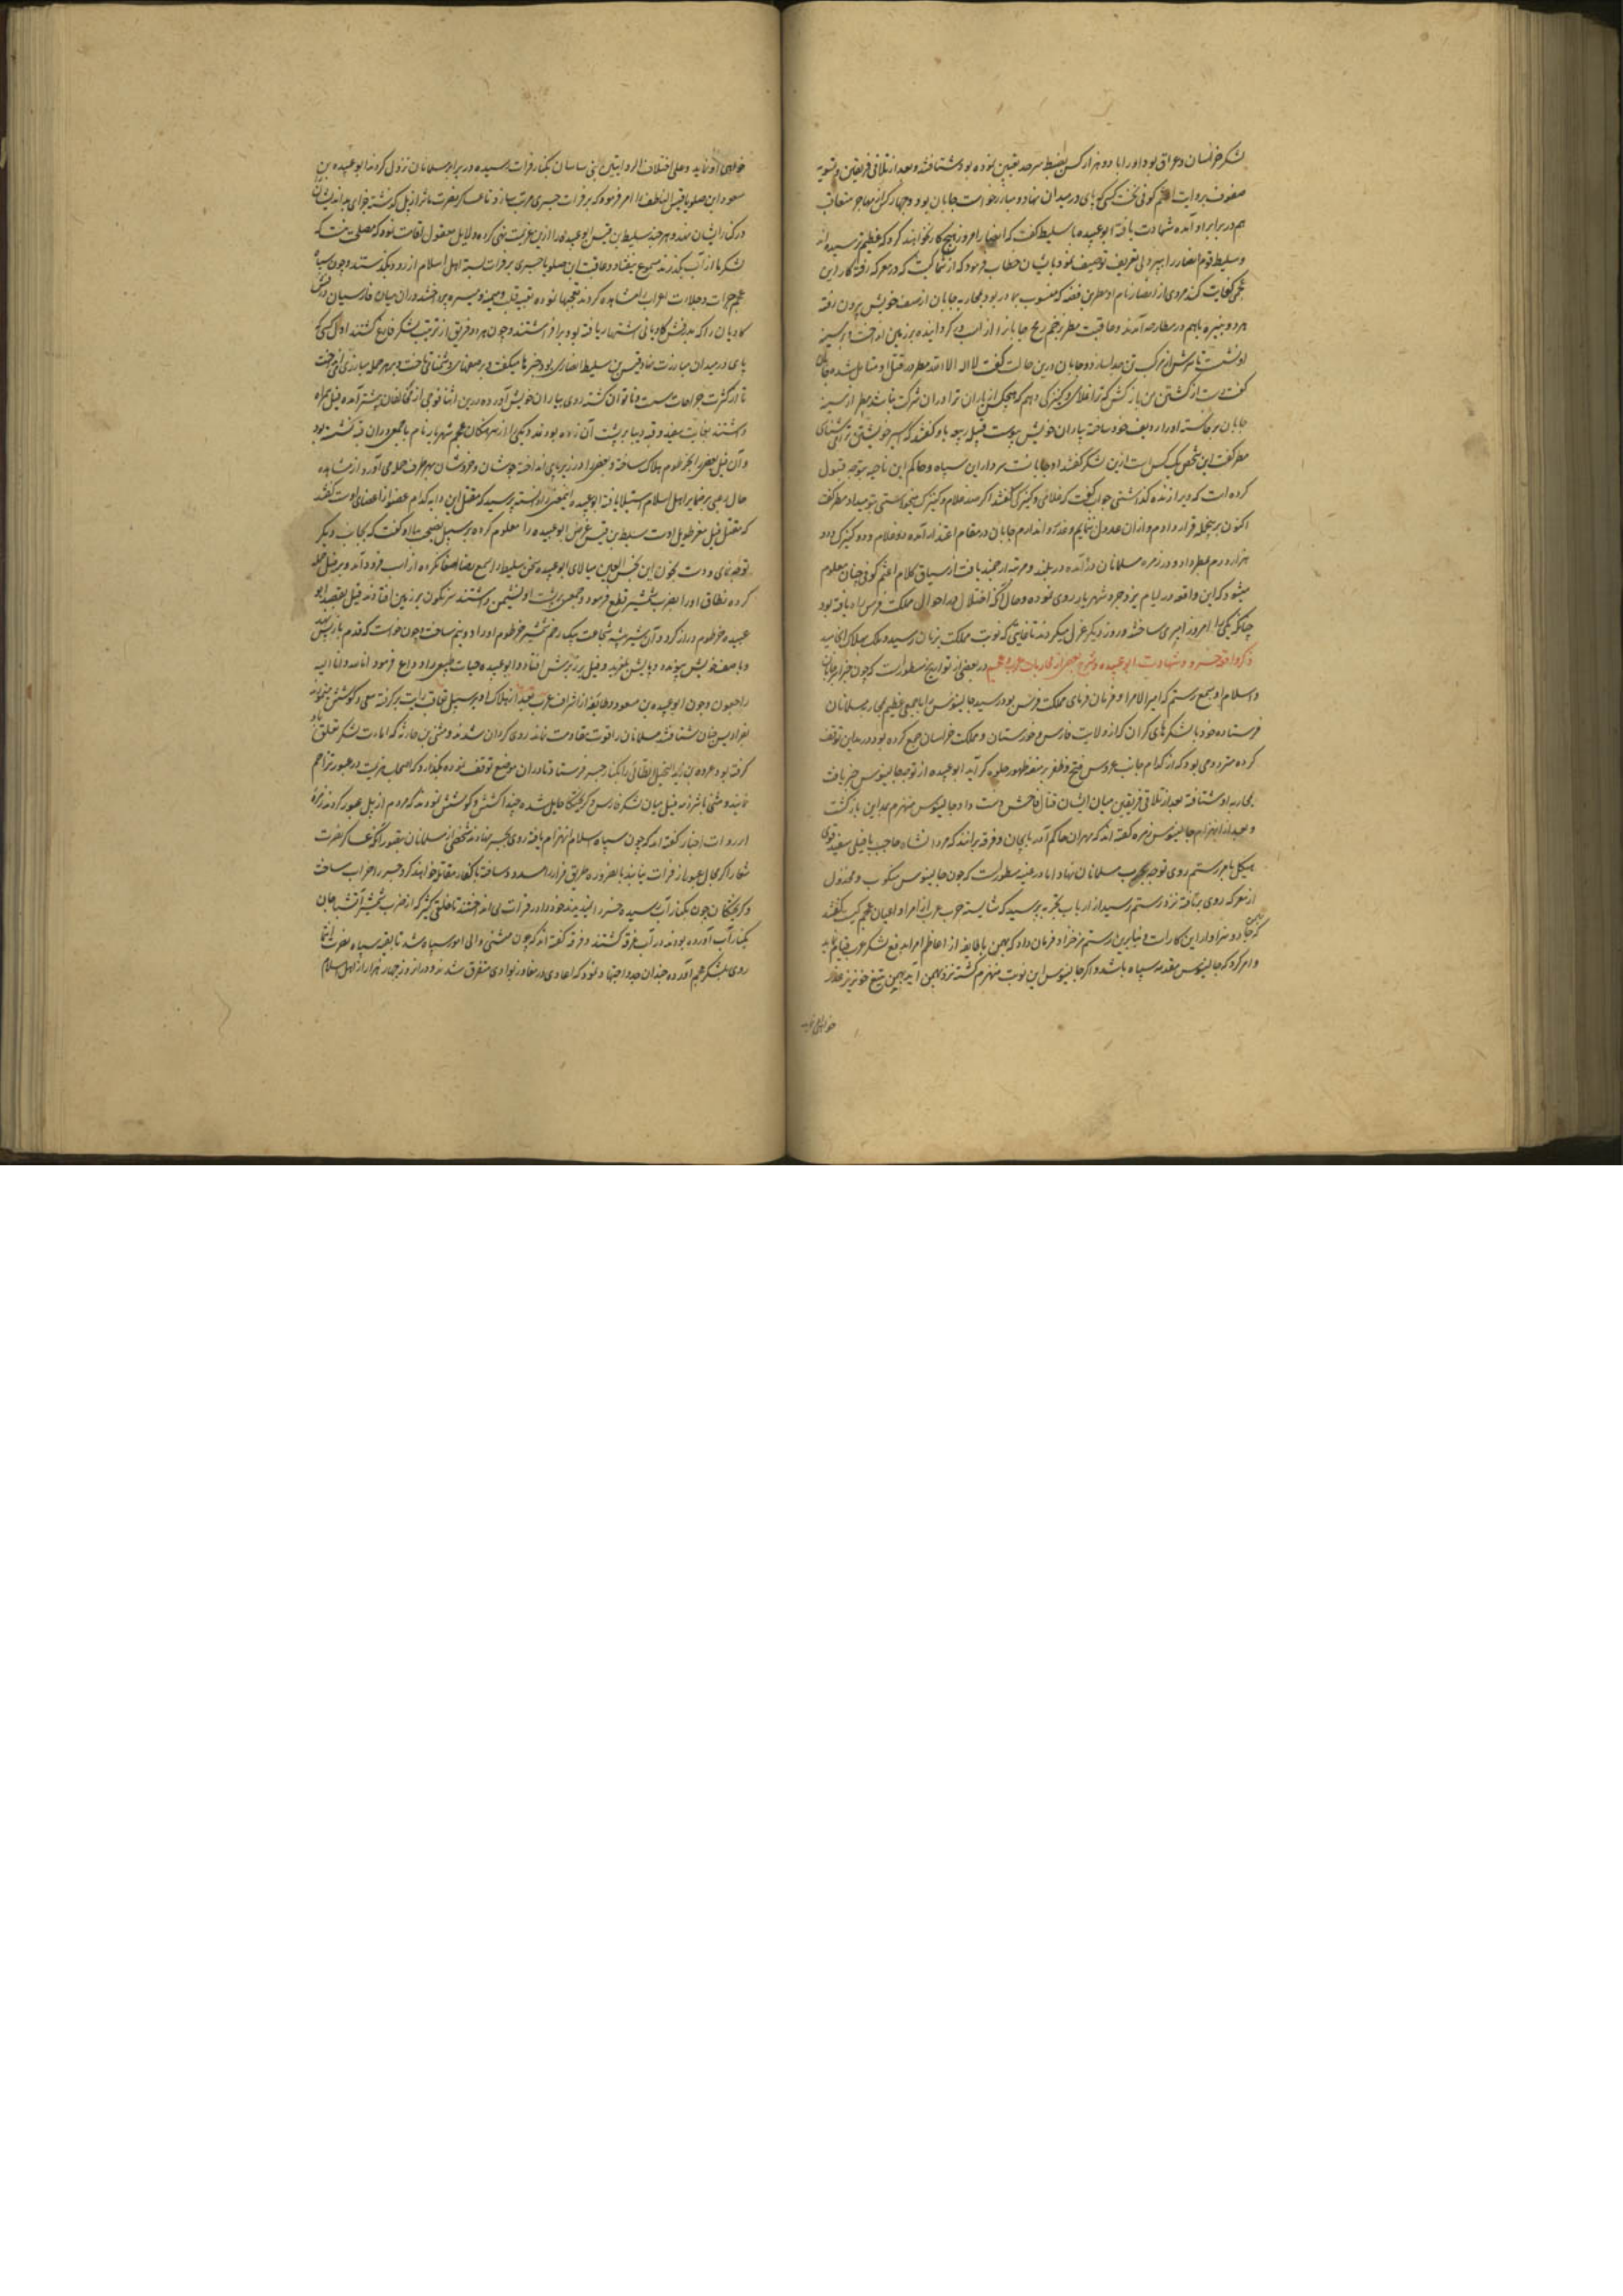 لشکر خراسان و عراق بود او را با دو هزار کس بضبط سرحد تعیین نموده بود شتافته و بعد از تلاقی فریقین و تسویه
صفوف بروایت اعثم کوفی نخست کسی که پای در میدان نهاد و مبارز خواست جابان بود و چهار کس از مهاجر متعاقب
هم در برابر او آمده شهادت یافته ابو عبیده با سلیط گفت که انصار امروز هیچ کار نخواهند کرد که عظیم ترسیده اند
و سلیط قوم انصار را بپر دلی تعریف و توصیف نمود بایشان خطاب فرمود که از شما کیست که در معرکه رفته کار این
عجمی کفایت کند مردی از انصار نام او مطر بن فضه که منسوب بمادر بود بمحاربه جابان از صف خویش بیرون رفته
هر دو بنیزه باهم در مطارحه آمدند و عاقبت مطر بزخم رمح جابانرا از اسب گردانیده بر زمین انداخت و بر سینه
او نشست تا سرش از مرکب تن جدا سازد و جابان درین حالت گفت لا اله الا الله مطر در قتل او متامل شد جابان
گفت دست از کشتن من باز کش که ترا غلامی و کنیزکی دهم که هیچکس از یاران ترا در آن شرکت نباشد مطر از سینه
جابان برخاسته او را ردیف خود ساخته بیاران خویش پیوست قبیله ربیعه باو گفتند که اسیر خویشتن را می شناسی
مطر گفت این شخص یک کس است ازین لشکر گفتند او جابانست سردار این سپاه و حاکم این ناحیه بتوجه قبول
کرده است که ویرا زنده گذاشتی جواب گفت که غلامی و کنیزکی گفتند اگر صد غلام و کنیزک میخواستی بتو میداد مطر گفت
اکنون بر همین جمله قرار دادم و از آن عدول ننمایم و غدر روا ندارم جابان در مقام اعتذار آمده دو غلام و دو کنیزک و دو
هزار درم بمطر داد و در زمره مسلمانان در آمده در بلند و مرتبه ارجمند یافت از سیاق کلام اعثم کوفی چنان معلوم
میشود که این واقعه در ایام یزدجرد شهریار روی نموده و حال آنکه اختلال در احوال مملکت فرس راه یافته بود
چنانکه یکی را امروز امیر می ساختند و روز دیگر عزل میکردند تا غایتی که نوبت مملکت بزنان رسید و ملک بهلاک انجامید
ذکر واقعه جسر و شهادت ابو عبیده و شرح بعضی از محاربات عرب و عجم در بعضی از تواریخ مسطور است که چون خبر جابان
و اسلام او بسمع رستم که امیر الامرا و فرمان فرمای مملکت فرس بود رسید جالینوس را با جمعی عظیم بمحاربه مسلمانان
فرستاده خود با لشکرهای گران که از ولایت فارس و خوزستان و مملکت خراسان جمع کرده بود در مداین توقف
کرده مترصد می بود که از کدام جانب عروس فتح و ظفر بر منصه ظهور جلوه گر آید ابو عبیده از توجه جالینوس خبر یافت
بمحاربه او شتافته بعد از تلاقی فریقین میان ایشان قتال فاحش دست داد جالینوس منهزم بمداین بازگشت
و بعد از انهزام جالینوس زمره گفته اند که مهران حاکم آذربایجان و فرقه برانند که مردانشاه حاجب با فیلی سفید قوی
هیکل بامر رستم روی توجه بحرب مسلمانان نهاد اما در غنیه مسطور است که چون جالینوس منکوب و مخذول
از معرکه روی بر تافته نزد رستم رسید از ارباب تجربه پرسید که شایسته حرب عرب از امرا و اعیان عجم کیست گفتند
که بهمن جادو سزاوار این کار است و بنا برین رستم فرخزاد فرمان داد که بهمن با طایفه از اعاظم امرا بدفع لشکر عرب قیام نماید
و امر کرد که جالینوس مقدمه سپاه باشد و اگر جالینوس این نوبت منهزم گشته نزد بهمن آید بهمن بتیغ خونریز
خواهی او نماید
خواهی او نماید و علی اختلاف الروایتین بنی ساسان بکنار فرات رسیده در برابر مسلمانان نزول کردند ابو عبیده بن
مسعود ابن صلوبا قیس الناطف را امر فرمود که بر فرات جسری مرتب سازد تا عساکر نصرت مآثر از پل گذشته جزای بداندیشان
در کنار ایشان نهند و هر چند سلیط بن قیس ابو عبیده را ازین عزیمت نهی کرده دلایل معقول اقامت نمود که مصلحت نیست که
لشکر ما از آب بگذرند مسموع نیفتاد و عاقبت ابن صلوبا جسری بر فرات بسته اهل اسلام از رود بگذشتند و چون سپاه
عجم جرات و جلادت اعراب را مشاهده کردند تعجبها نموده بتعبیه قلب و میمنه و میسره پرداختند و در آن میان فارسیان درفش
کاویان را که بدرفش کاویانی اشتهار یافته بود برافراشتند و چون هر دو فریق از ترتیب لشکر فارغ گشتند اول کسی که
پای در میدان مبارزت نهاد قیس بن سلیط انصاری بود رجزها میگفت و بر صفهای دشمنان می تاخت و بهر حمله مبارزی می انداخت
تا از کثرت جراحات سست و ناتوان گشته روی بیاران خویش آورد و درین اثنا فوجی از مخالفان پیشتر آمده فیلی همراه
داشتند بغایت سفید و قبه دیبا بر پشت آن زده بودند و یکی از سرهنگان عجم شهریار نام با جمعی در آن قبه نشسته بود
و آن فیل بعضی را بخرطوم هلاک ساخته و بعضی را در زیر پای انداخته جوشان و خروشان بهر طرف حمله می آورد و از مشاهده
حال رعبی بر ضمایر اهل اسلام استیلا یافته ابو عبیده اینمعنی را دانسته پرسید که مقتل این دابه کدام عضو از اعضای اوست گفتند
که مقتل فیل خرطوم اوست سلیط بن قیس غرض ابو عبیده را معلوم کرده بر سبیل نصیحت باو گفت که بجانب دیگر
توجه نمای و دست بخون این نجس العین میالای ابو عبیده سخن سلیط را بسمع رضا اصغا نکرده از اسب فرود آمد و بر فیل حمله
کرده نطاق او را بضرب شمشیر قطع فرمود و جمعی بر پشت او نشیمن داشتند سرنگون بر زمین افتادند فیل بقصد ابو
عبیده خرطوم دراز کرد و آن شیر بیشه شجاعت بیک زخم شمشیر خرطوم او را دو نیم ساخت و چون خواست که قدم باز پس نهد
و با صف خویش پیوندد پایش بلغزید و فیل بر زبرش افتاد و ابو عبیده حیات طبیعی را وداع فرمود انا لله و انا الیه
راجعون و چون ابو عبیده بن مسعود و طایفه از اشراف عرب بعد از هلاک او بر سبیل تعاقب رایت برگرفته سعی و کوشش می نمودند
بفرادیس جنان شتافتند مسلمانان را قوت مقاومت نمانده روی گردان شدند و مثنی بن حارثه که امارت لشکر باو تعلق
گرفته بود عروه بن زید الخیل الطائی را بکنار جسر فرستاد تا در آن موضع توقف نموده نگذارد که اصحاب هزیمت در عبور تزاحم
نمایند و مثنی با شرذمه قلیل میان لشکر فارس و گریختگان حایل شده چندان کشش و کوشش نمودند که مردم از پل عبور کردند زمره
از روات اخبار گفته اند که چون سپاه اسلام انهزام یافته روی بجسر نهادند شخصی از مسلمانان بتصور آنکه عساکر نصرت
شعار اگر مجال عبور از فرات نیابند بالضروره طریق فرار مسدود یافته با کفار مقاتله خواهند کرد جسر را خراب ساخت
و گریختگان چون بکنار آب رسیده جسر را ندیدند خود را در فرات می انداختند تا خلقی کثیر که از ضرب شمشیر آتشبار جان
بکنار آب آورده بودند در آب غرقه گشتند و فرقه گفته اند که چون مثنی والی امور سپاه شد با بقیه سپاه نصرت انتما
روی بلشکر عجم آورده چندان جد و اجتهاد نمود که اعادی در مفاوز و بوادی متفرق شدند و در آن روز چهار هزار از اهل اسلام